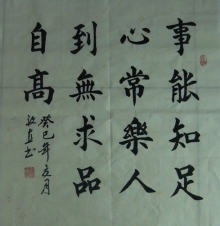 事能知足
心常樂人
到無求品
自高
癸巳年夏月
书